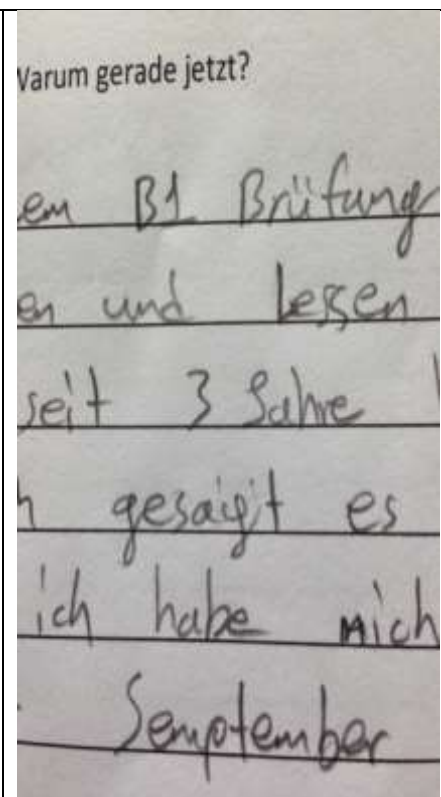 Varum gerade jetzt?
em B1 Brüfung
en und lessen
seit 3 Jahre
h gesaigit es
ich habe mich
Semptember